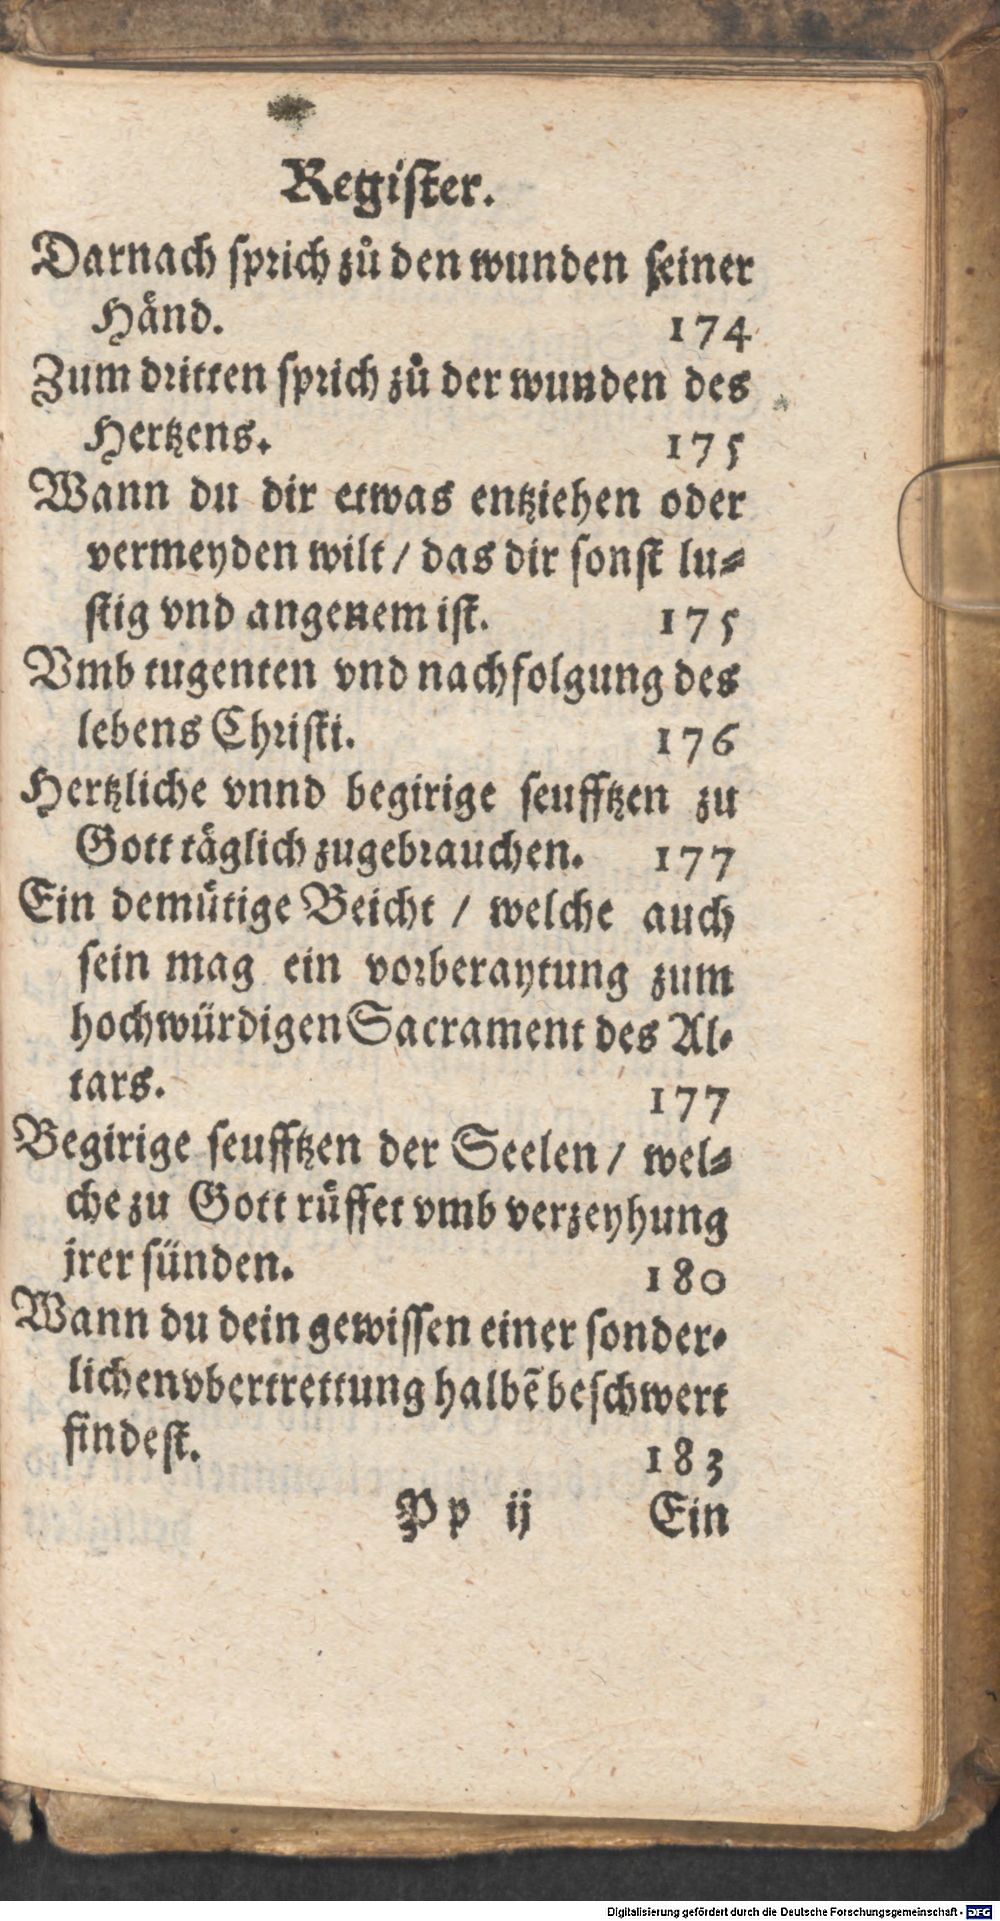 Register.
Darnach sprich zů den wunden seiner
Händ. 174
Zum dritten sprich zů der wunden des
Hertzens. 175
Wann du dir etwas entziehen oder
vermeyden wilt / das dir sonst lu-
stig vnd angenem ist. 175
Vmb tugenten vnd nachfolgung des
lebens Christi. 176
Hertzliche vnnd begirige seufftzen zu
Gott täglich zugebrauchen. 177
Ein demütige Beicht / welche auch
sein mag ein vorberaytung zum
hochwürdigen Sacrament des Al-
tars. 177
Begirige seufftzen der Seelen / wel-
che zu Gott rüffet vmb verzeyhung
jrer sünden. 180
Wann du dein gewissen einer sonder-
lichen vbertrettung halbẽ beschwert
findest. 183
Pp ij Ein
Digitalisierung gefördert durch die Deutsche Forschungsgemeinschaft - DFG